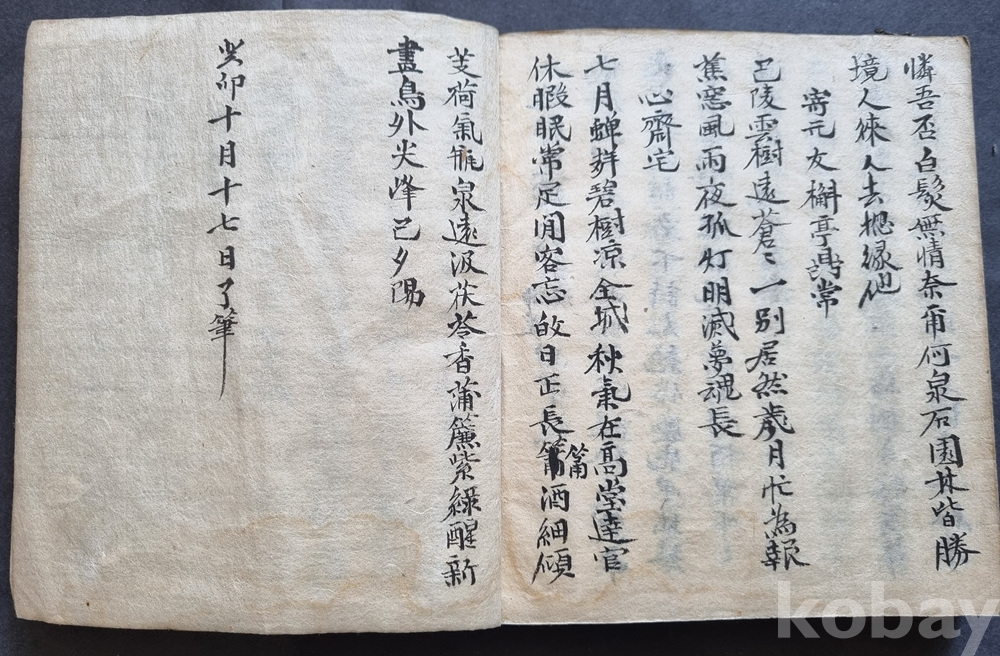 憐吾丕白鬂無情奈甭何泉石園林皆勝
境人來人去摠緣他
寄元友檞亭昌常
巴陵雲樹遠蒼〻一別居然歲月忙為報
蕉窓風雨夜孤灯明滅夢魂長
心齋宅
七月蟬群碧樹凉全城秋氣在高堂達官
休暇眠常足閒客忘攸日正長筩酒細傾
筩
芰荷氣 泉遠汲茯苓香蒲簾紫綠醒新
畫鳥外尖峰已夕陽
癸卯十月十七日了筆
kobay